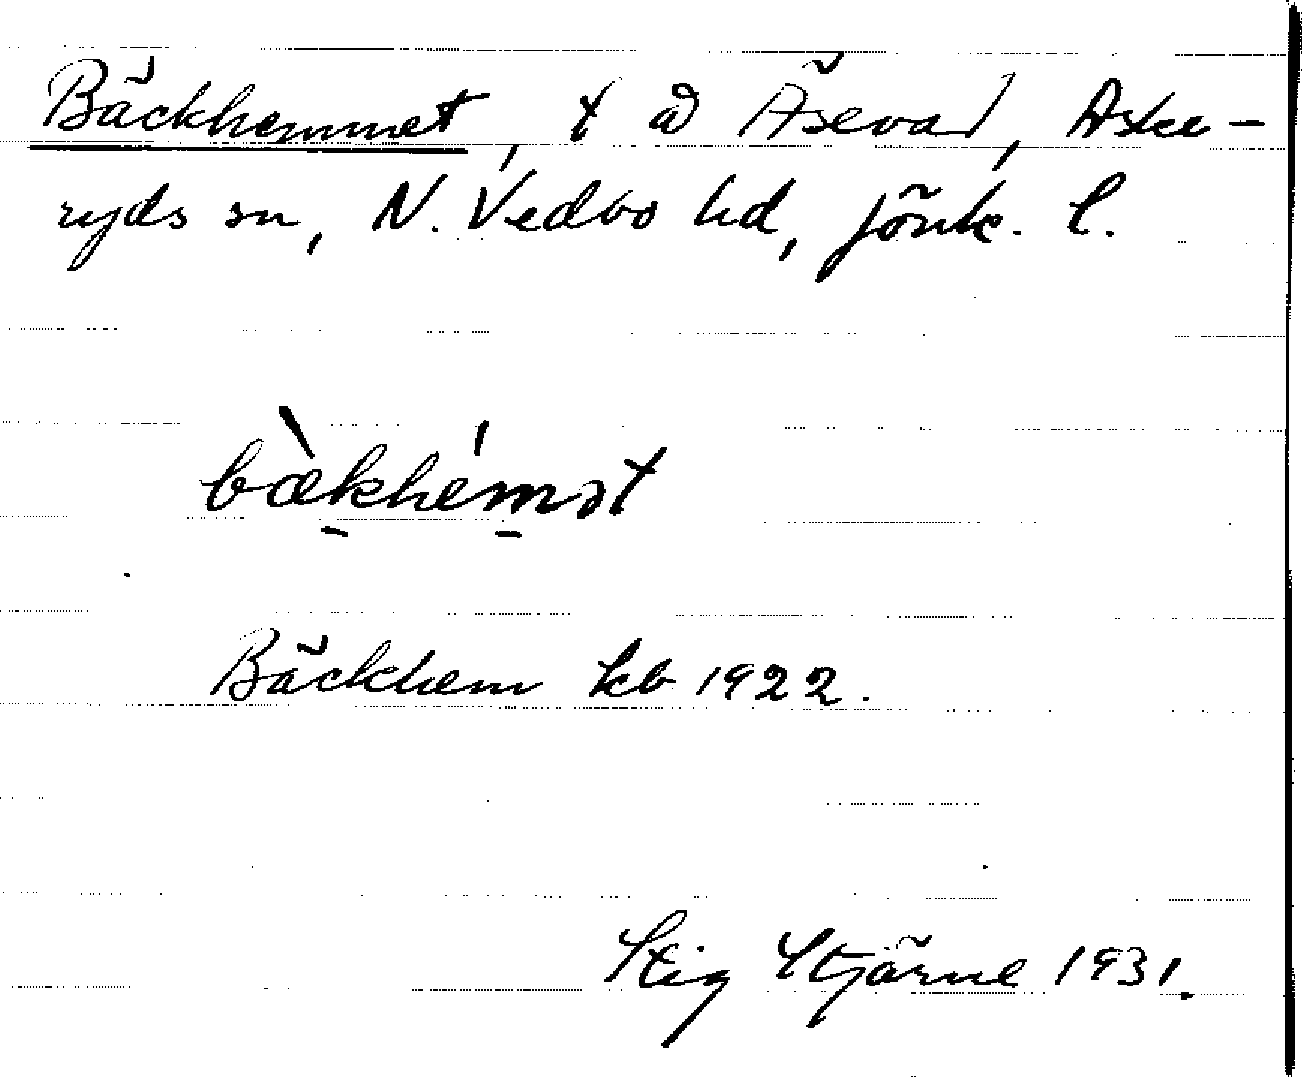 Bäckhemmet, t å Äsevad, Aske-
ryds sn, N. Vedbo hd, Jönk. l.
bæ̀khémət
Bäckhem kb 1922.
Stig Stjärne 1931.